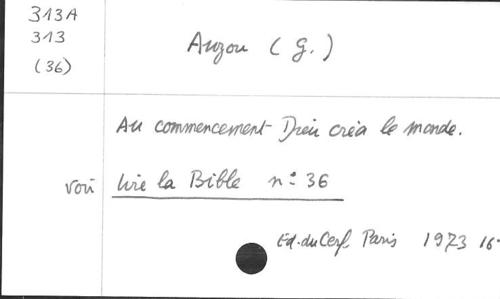 313A
313
(36)
Auzou (G.)
Au commencement Dieu créa le monde.
voir lire la Bible n° 36
Ed. du Cerf Paris 1973 16